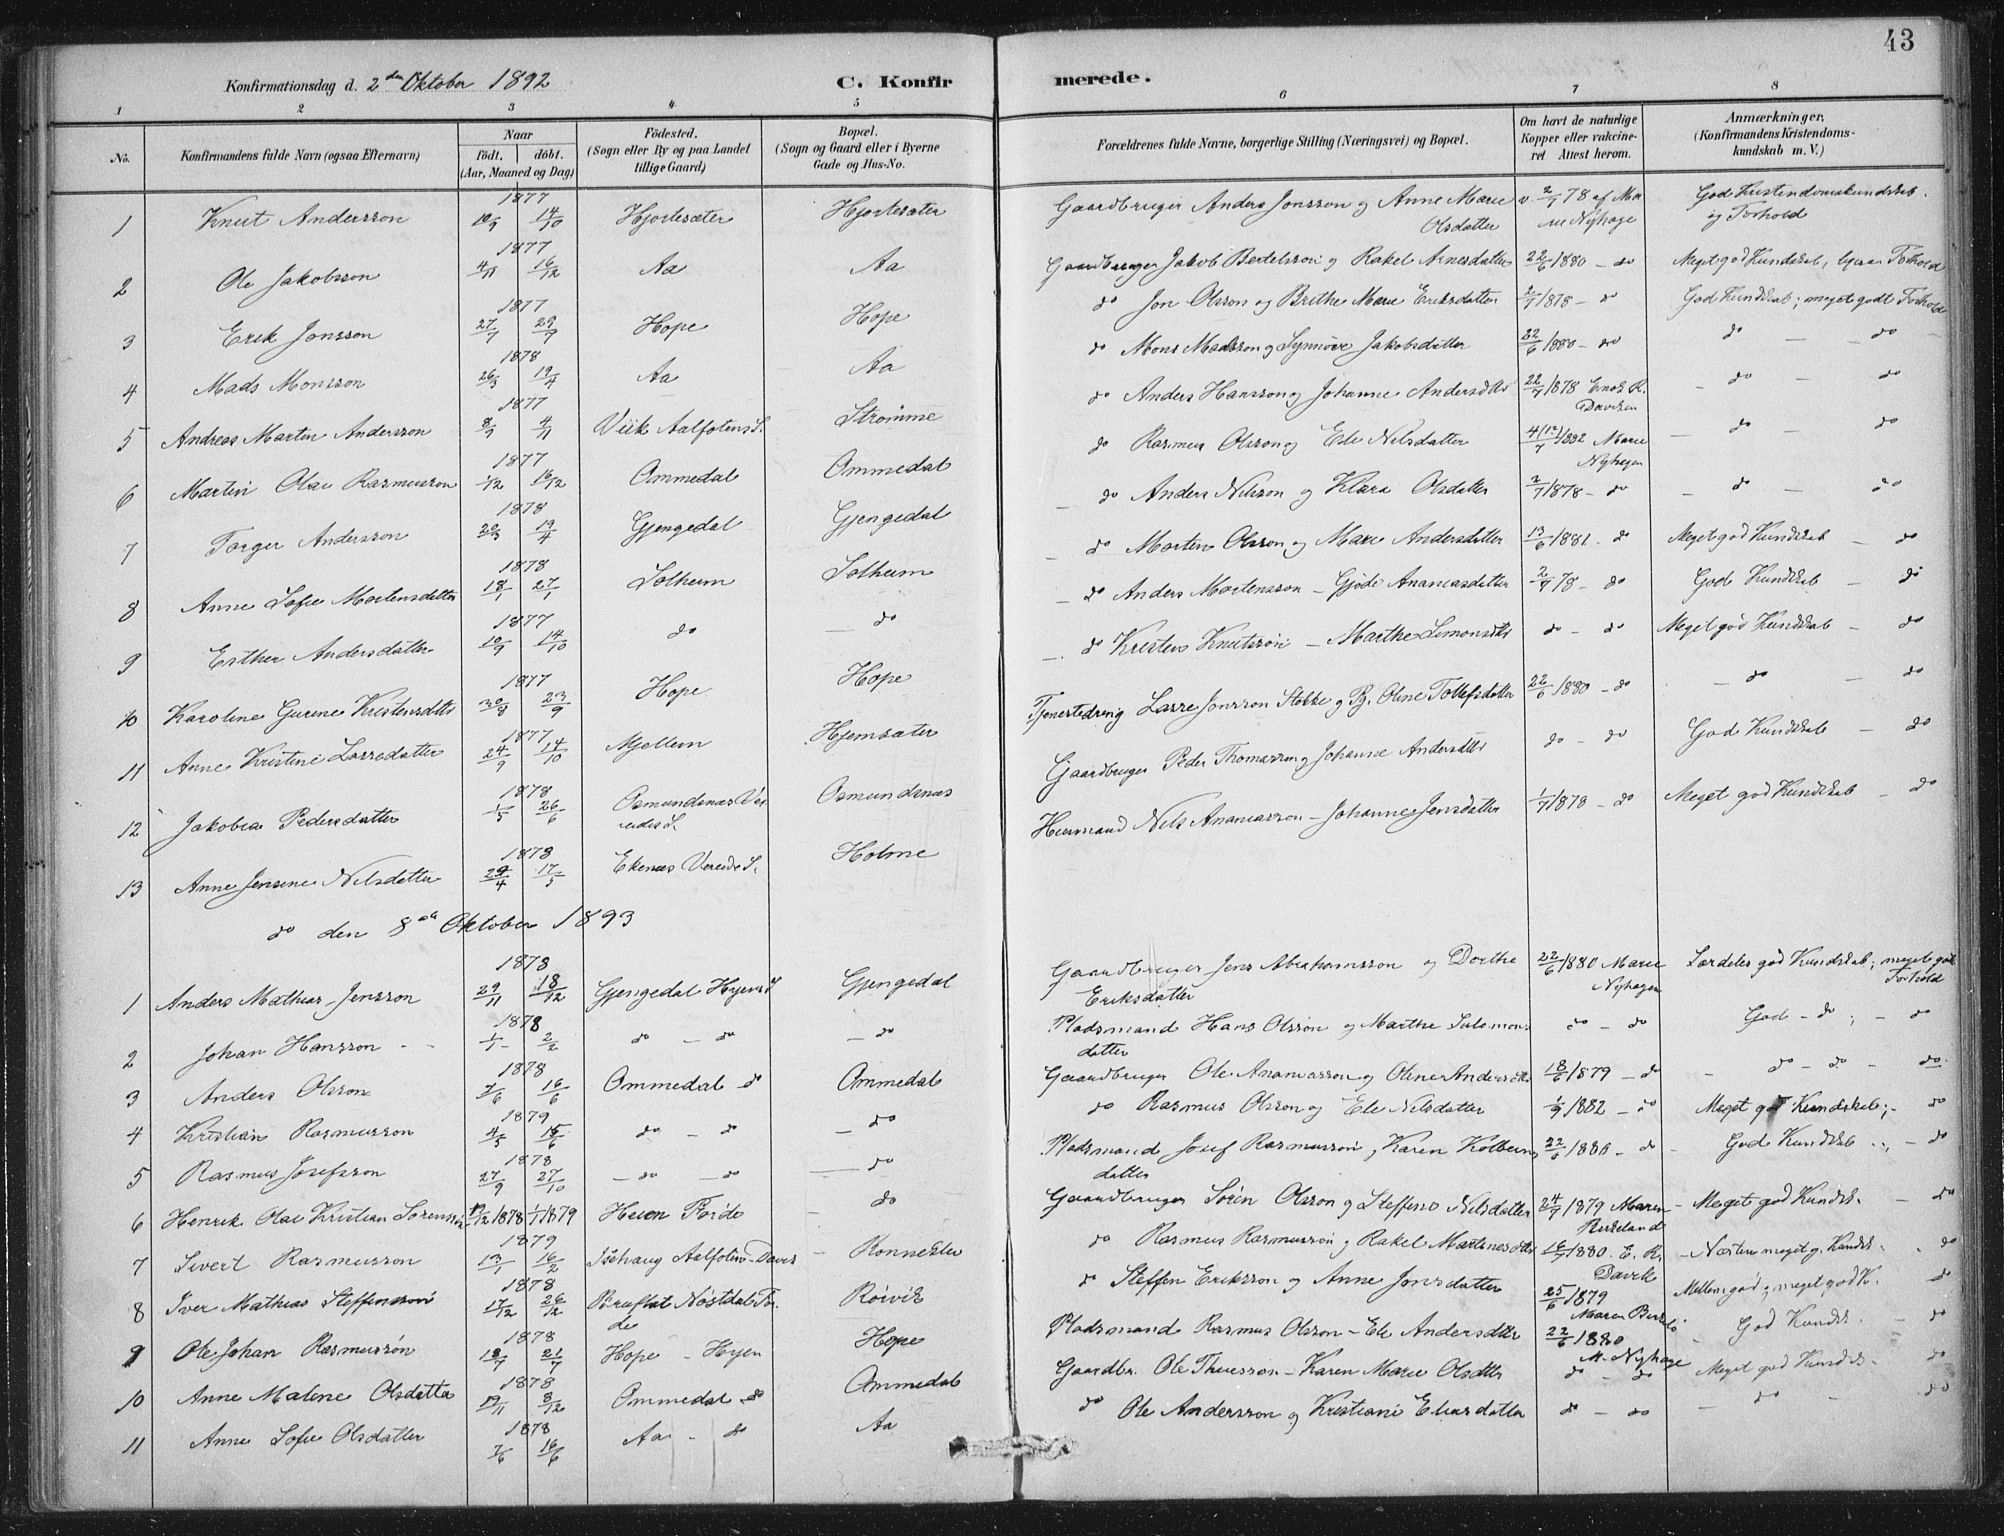 43
Konfirmationsdag d. 2den Oktober 1892 C. Konfirmerede.
1 2 3 4 5 6 7 8
No. Konfirmandens fulde Navn (ogsaa Efternavn) Naar født. døbt. (Aar, Maaned og Dag) Fødested. (Sogn eller By og paa Landet tillige Gaard) Bopæl. (Sogn og Gaard eller i Byerne Gade og Hus-No. Forældrenes fulde Navne, borgerlige Stilling (Næringsvei) og Bopæl. Om havt de naturlige Kopper eller vakcineret Attest herom. Anmærkninger, (Konfirmandens Kristendomskundskab m. V.)
1 Knut Andersson 1877 10/9 14/10 Hjortesæter Hjortesæter Gaardbruger Anders Jonsson og Anne Marie Olsdatter v. 2/7 78 af Marie Nyhage God Kristendomskundskab og Forhold
2 Ole Jakobsson 1877 4/11 16/12 Aa Aa Gaardbruger Jakob Bertelsson og Rakel Arnesdatter 22/6 1880 - do Meget god Kundskab, Forhold
3 Erik Jonsson 1877 27/7 29/9 Hope Hope do Jon Olsson og Brithe Marie Eriksdatter 2/7 1878 - do God Kundskab; meget godt Forhold
4 Mads Monsson 1878 26/3 19/4 Aa Aa do Mons Madsson og Synnøve Jakobsdatter 22/6 1880 - do do - do
5 Andreas Martin Andersson 1877 8/9 4/11 Viik Aalfotens S. Strømme do Anders Hansson og Johanne Andersdtr 22/7 1878 Enok R. Davidsen - do - do
6 Martin Olai Rasmusson 1877 1/12 16/12 Ommedal Ommedal do Rasmus Olsson og Ele Nilsdatter 4(12)/7 1882 Marie Nyhagen - do - do
7 Torger Andersson 1878 20/3 19/4 Gjengedal Gjengedal do Anders Nilsson og Klara Olsdatter 2/7 1878 - do - do - do
8 Anne Sofie Mortensdatter 1878 18/1 27/1 Solheim Solheim - do Morten Olsson og Marie Andersdatter 13/6 1881 - do Meget god Kundskab - do
9 Esther Andersdatter 1877 10/9 14/10 do - do - do Anders Mortensson - Gjøde Ananiasdatter 2/7 78 - do God Kundskab - do
10 Karoline Gurine Kristensdtr 1877 30/8 23/9 Hope Hope - do Kristen Knutsson - Marthe Simonsdtr do - do Meget god Kundskab - do
11 Anne Kristine Larsdatter 1877 24/9 14/10 Mjellem Hjemsæter Tjenestedreng Lasse Jonsson Stokke og Pg. Oline Tollefsdatter 22/6 1880 - do - do - do
12 Jakobea Pedersdatter 1878 1/5 26/6 Osmundsnæs Vereides S. Osmundsnæs Gaardbruger Peder Thomasson og Johanne Andersdtr do - do God Kundskab - do
13 Anne Jensine Nilsdatter 1878 29/4 17/5 Ekenæs Vereide S. Holme Huusmand Nils Ananiasson - Johanne Jensdatter 1/7 1878 - do Meget god Kundskab - do
do den 8de Oktober 1893
1 Anders Mathias Jensson 1878 29/11 18/12 Gjengedal Hyens S Gjengedal Gaardbruger Jens Abrahamsson og Dorthe Eriksdatter 22/6 1880 Marie Nyhagen Særdeles god Kundskab; meget godt Forhold
2 Johan Hansson - - 1878 1/1 2/2 do - do - do Pladsmand Hans Olsson og Marthe Salomonsdatter do - do God - do ; - do
3 Anders Olsson 1878 7/6 16/6 Ommedal do Ommedal Gaardbruger Ole Ananiasson og Oline Andersdtr 18/6 1879 - do - do - do - do
4 Kristian Rasmusson 1879 4/5 15/6 do - do - do do Rasmus Olsson og Ele Nilsdatter 1/9 1882 - do Meget god Kundskab; - do
5 Rasmus Josefsson 1878 27/9 27/10 - do - do - do Pladsmand Josef Rasmusson, Karen Kolbeinsdatter 22/6 1880 - do God Kundskab ; - do
6 Henrik Olai Kristian Sørensen 19/12 1878 1/1 1879 Heien Førde do Gaardbruger Søren Olsson og Steffine Nilsdatter 24/7 1879 Maren Birkeland - Meget god Kundsk. - do
7 Sivert Rasmusson 1879 13/1 16/2 Isehaug Aalfoten - Davik - Konneklev do Rasmus Rasmusson og Rakel Martinesdtr 16/7 1880. E. R. Davik - Næsten meget g. Kundsk. - do
8 Iver Mathias Steffensson 1878 17/12 26/12 Bruflat Nøstdal Førde Røivik do Steffen Eriksson og Anne Jonsdatter 25/6 1879 Maren Birkelø Mellem god og meget god K. do
9 Ole Johan Rasmussøn 1878 12/7 21/7 Hope - Hyen Hope Pladsmand Rasmus Olsson - Ele Andersdtr 22/6 1880 M. Nyhage - God Kundsk. - do
10 Anne Malene Olsdatter 1878 19/11 8/12 Ommedal do Ommedal Gaardbr. Ole Thuesson - Karen Marie Olsdtr do - do Meget god Kundsk. - do
11 Anne Sofie Olsdatter 1878 7/6 16/6 Aa - do Aa do Ole Andersson og Kristiane Eliasdatter do - do - do - do